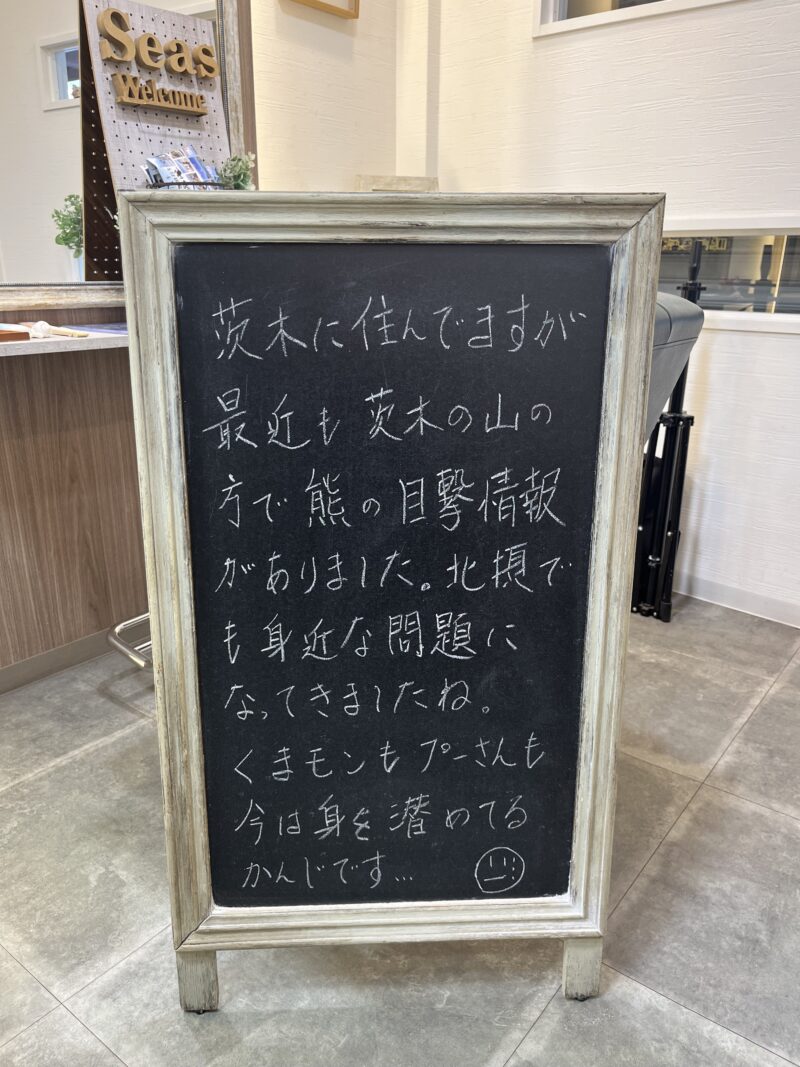 Seas
Welcome
茨木に住んでますが
最近も茨木の山の
方で熊の目撃情報
がありました。北摂で
も身近な問題に
なってきましたね。
くまモンもプーさんも
今は身を潜めてる
かんじです…